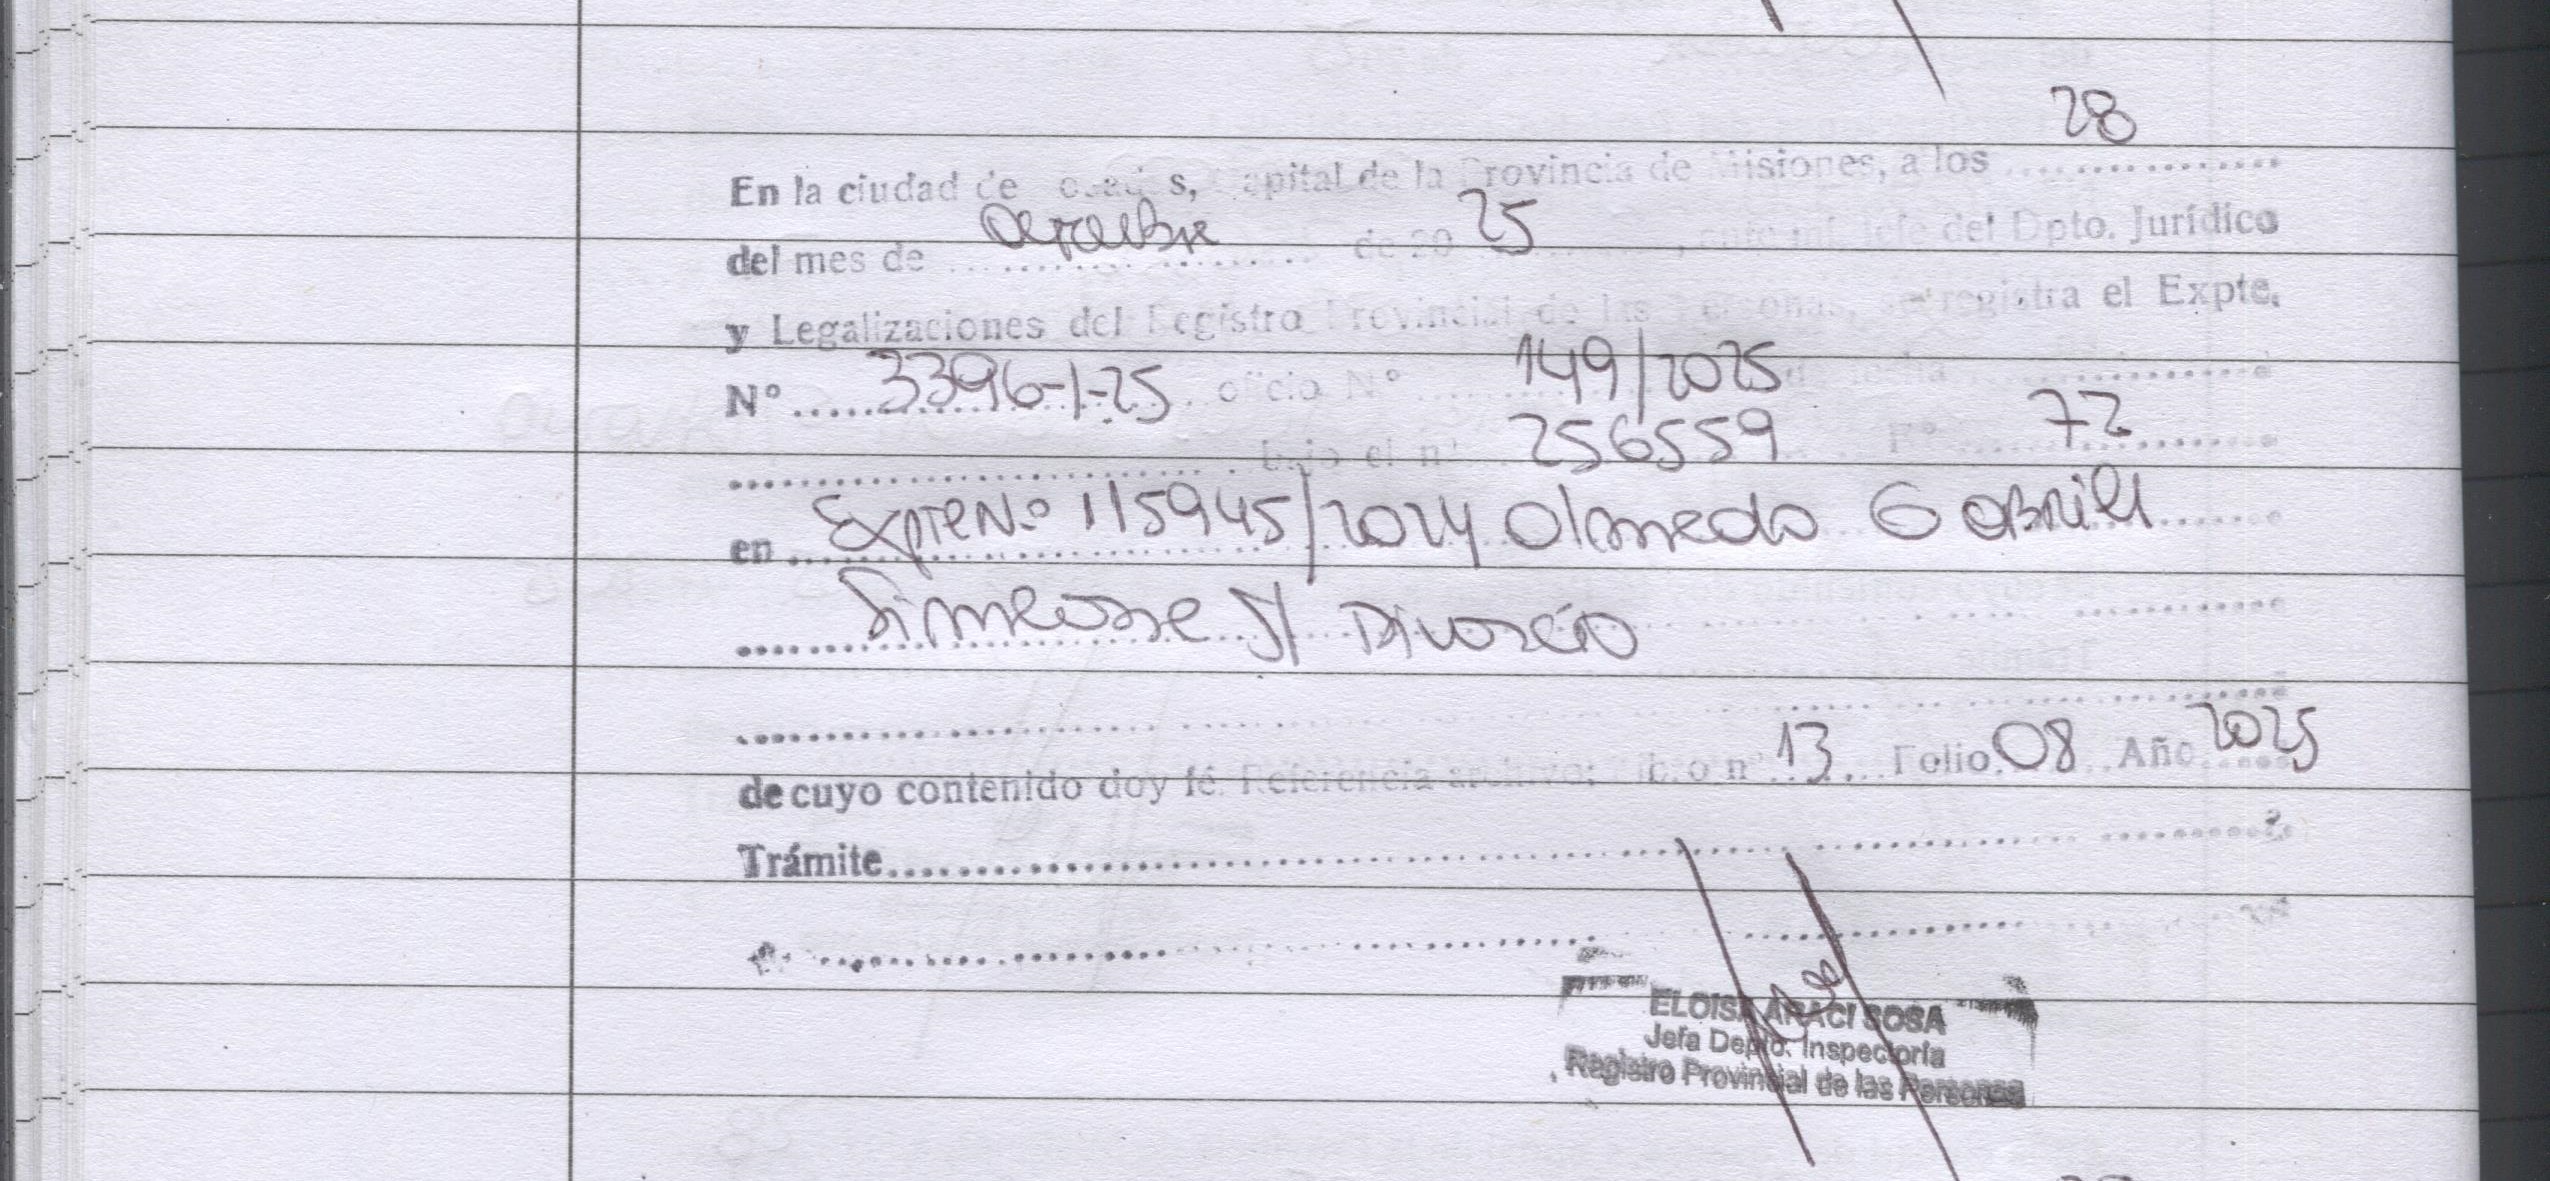 28
En la ciudad de Posadas, Capital de la Provincia de Misiones, a los ..............
del mes de ... Octubre ... de 20 25 , ante mí Jefe del Dpto. Jurídico
y Legalizaciones del Registro Provincial de las Personas, se registra el Expte.
Nº ..... 3396-1-25 ... oficio Nº ... 149/2025 ... fecha ..........
.............................. bajo el nº 256559 ... Fº ... 72 ..........
en ... Expte Nº 115945/2024 Olmedo Gabriel
..........  S/ Divorcio
..............................
de cuyo contenido doy fé. Referencia archivo: Libro nº 13 Folio 08 Año 2025
Trámite..............................
..............................
ELOISA ARACI SOSA
Jefa Depto. Inspectoría
Registro Provincial de las Personas